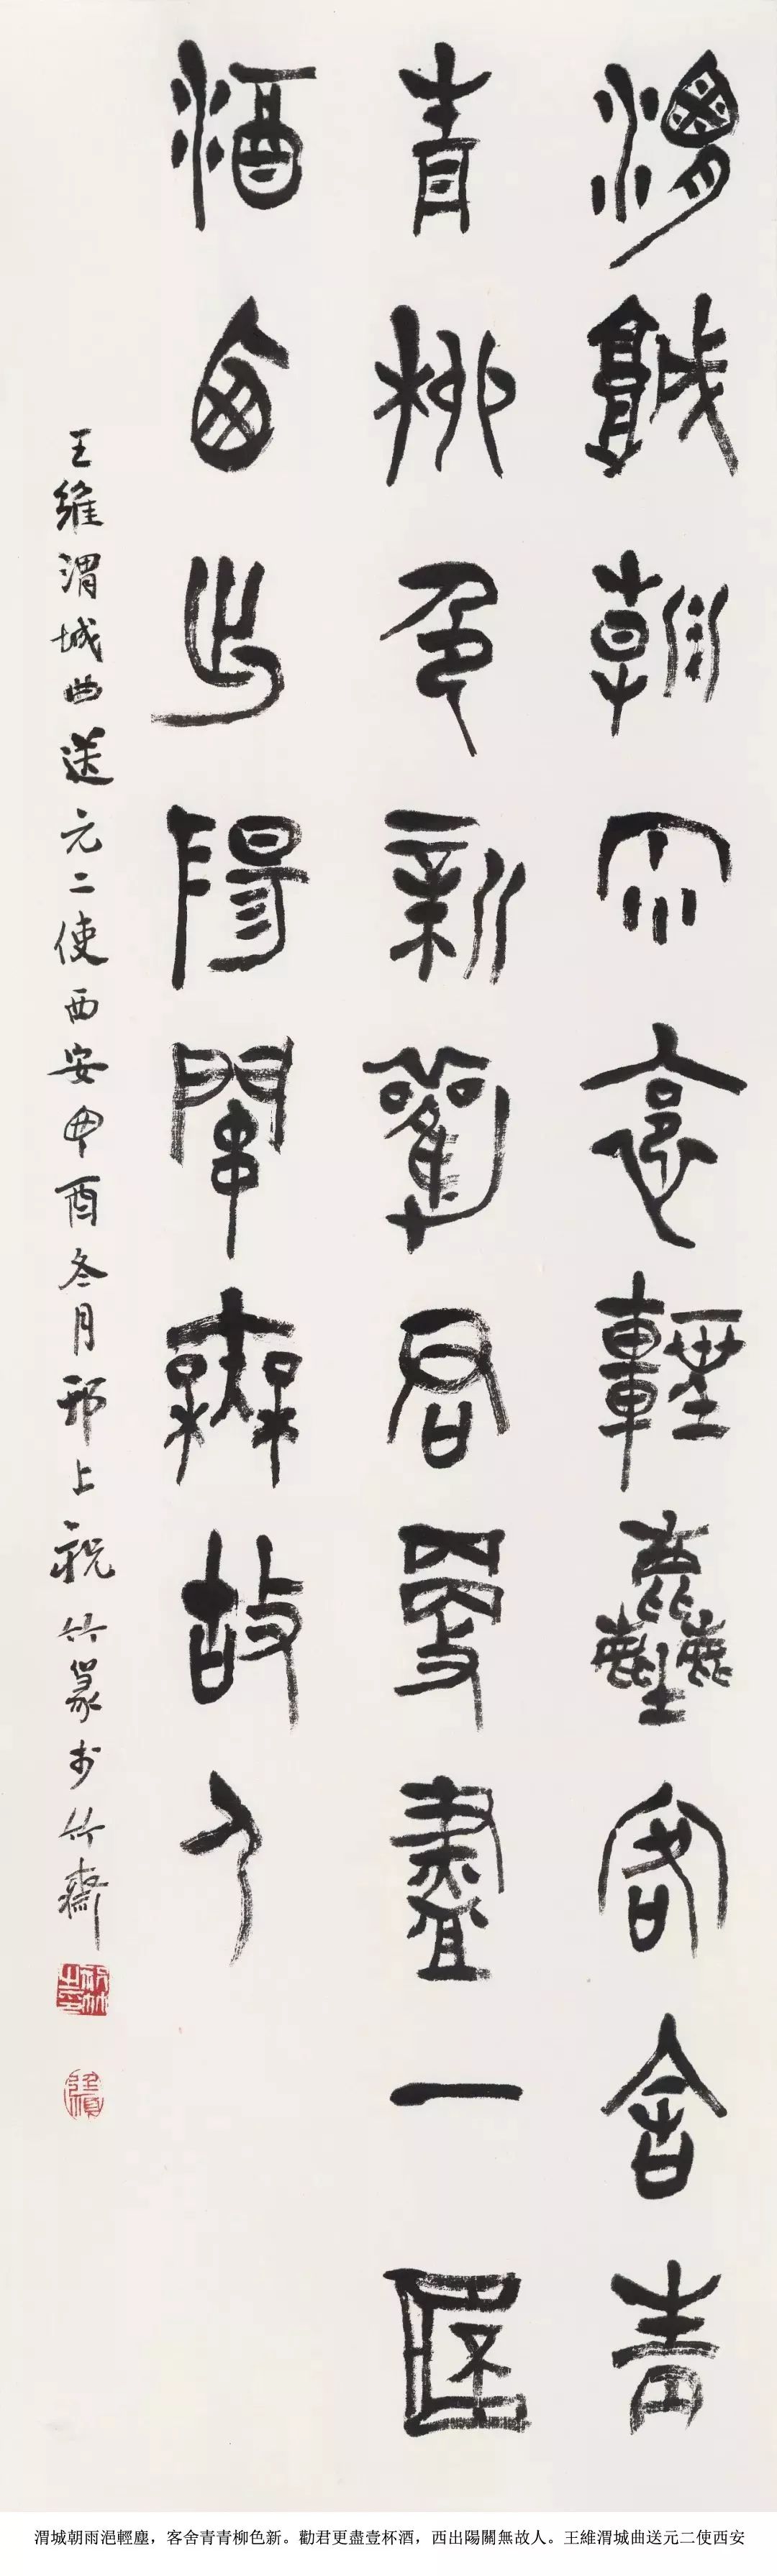 渭城朝雨裛輕塵客舍青
青柳色新勸君更盡一杯
酒西出陽關無故人
王維渭城曲送元二使西安甲酉冬月邗上祝竹篆於竹齋
渭城朝雨浥輕塵，客舍青青柳色新。勸君更盡壹杯酒，西出陽關無故人。王維渭城曲送元二使西安